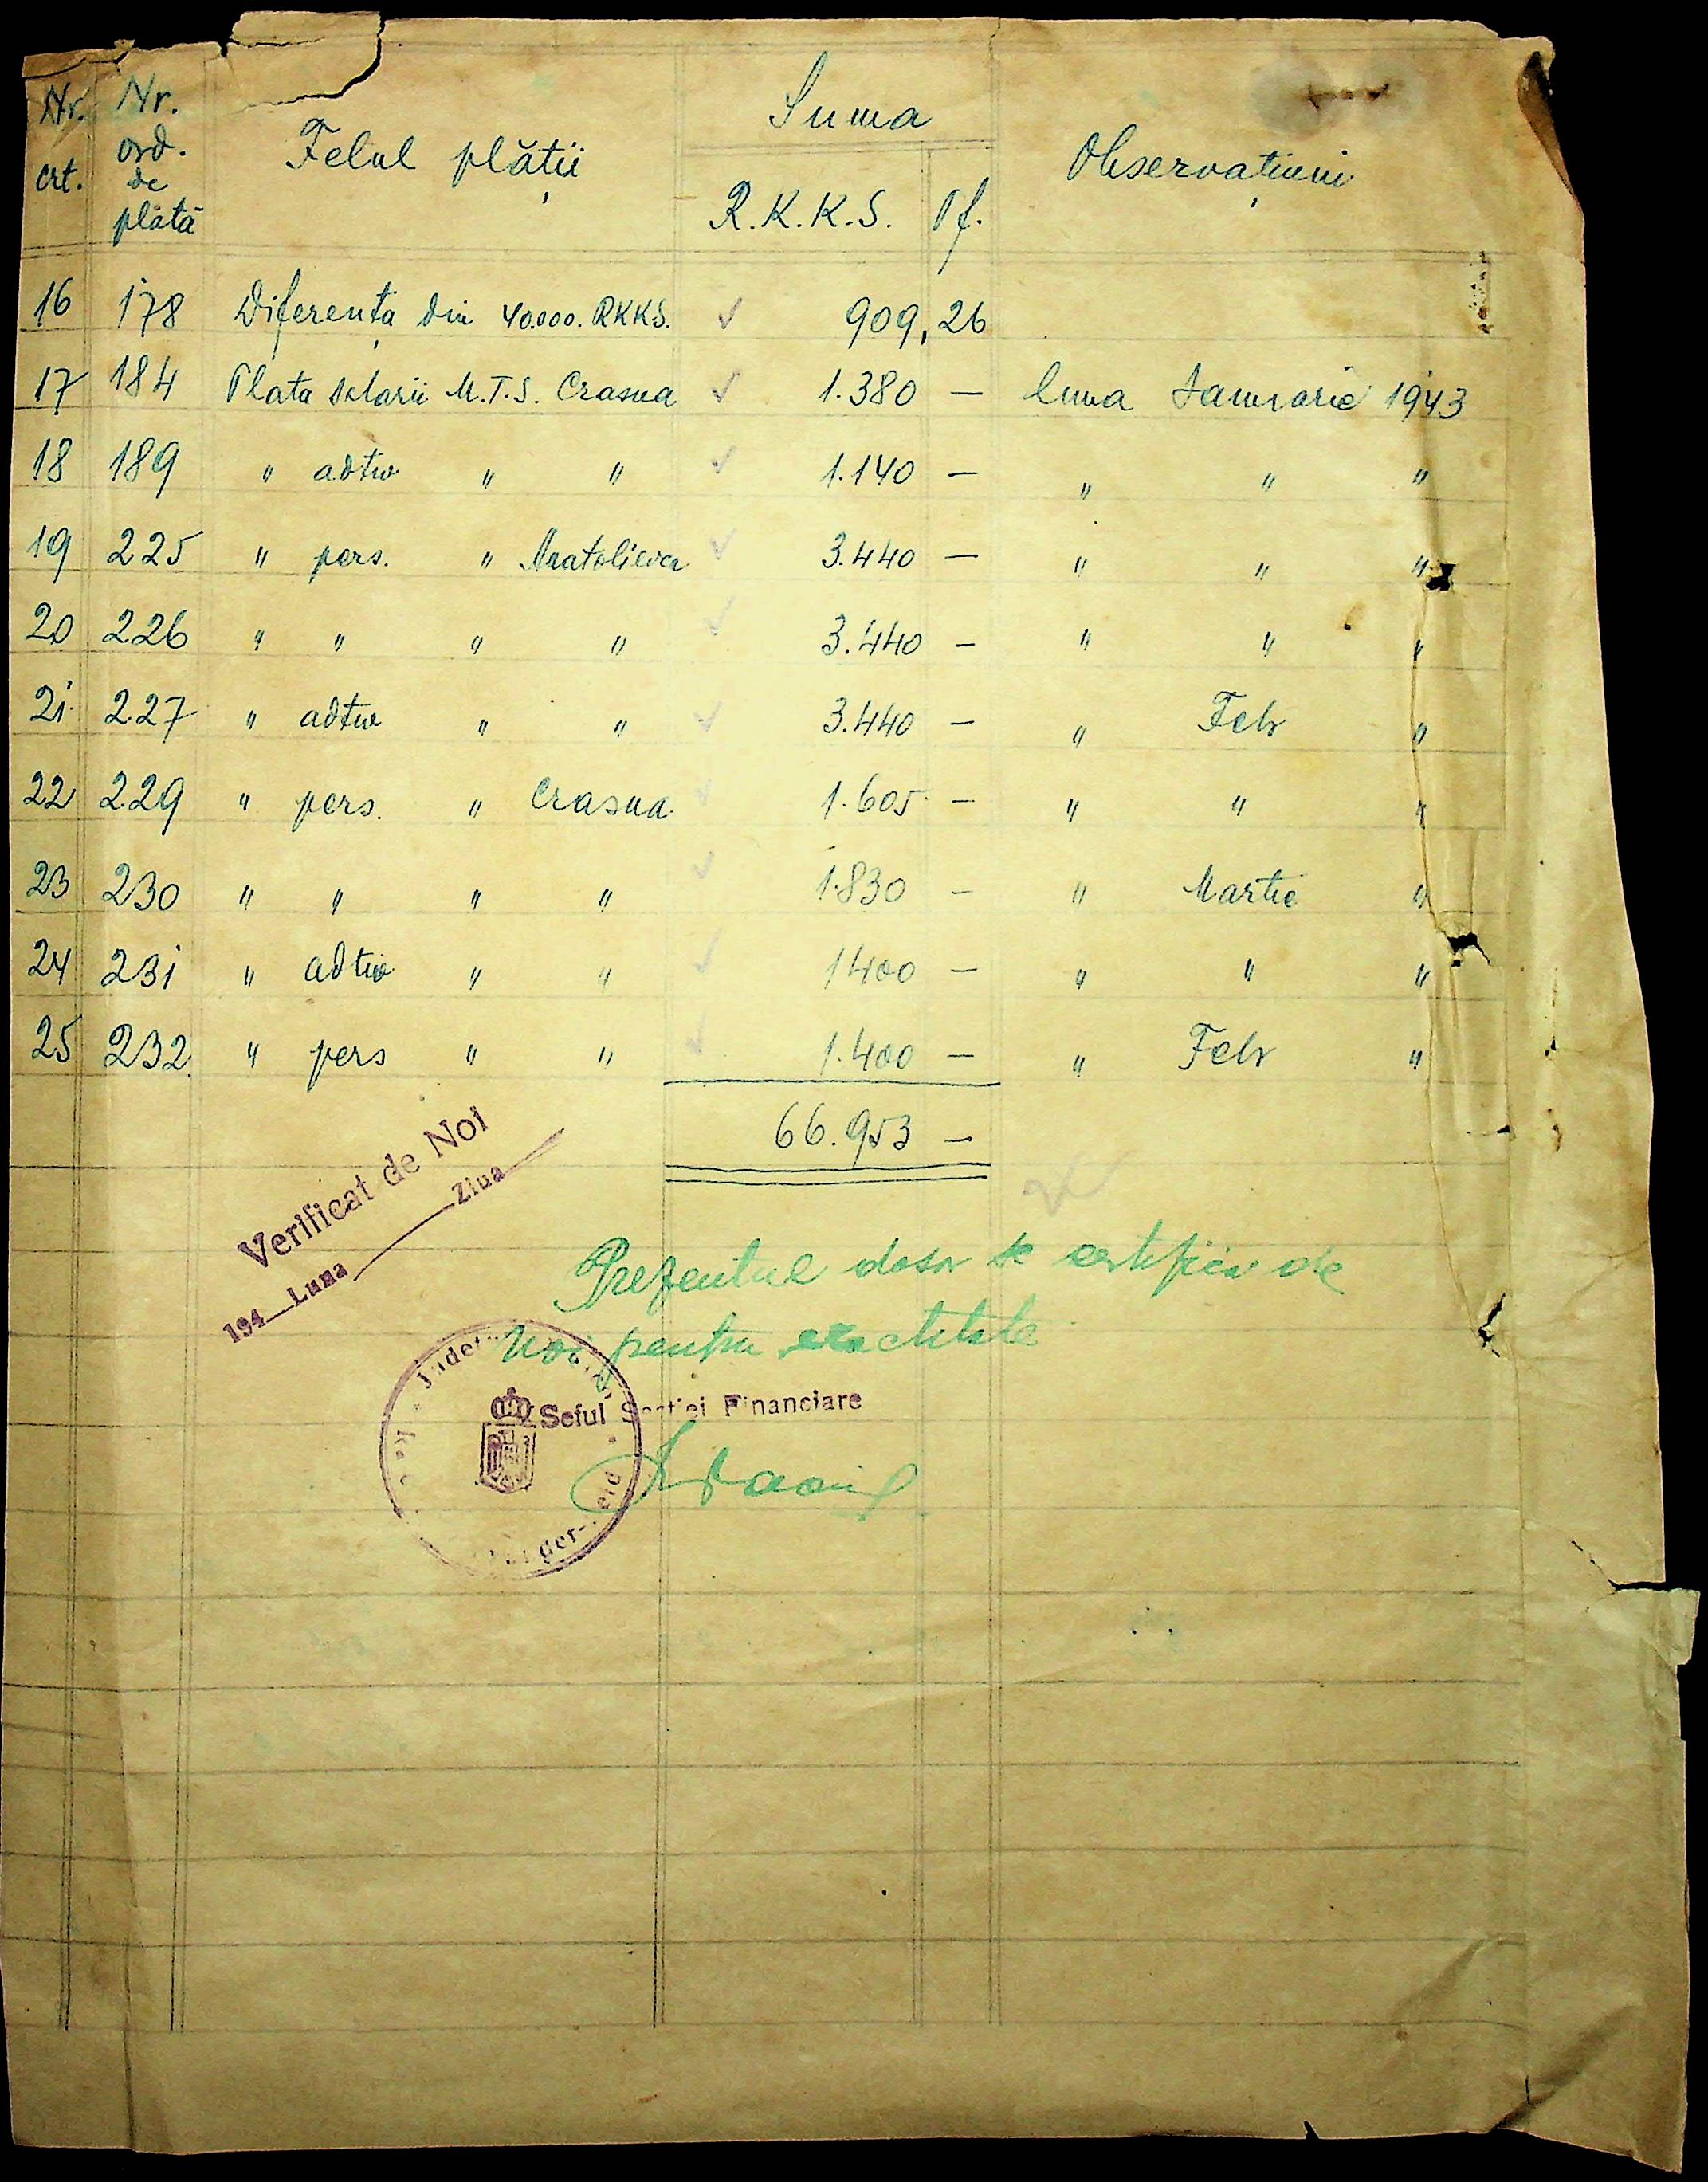 Nr. crt. Nr. ord. de plată Felul plății Suma Observațiuni
R.K.K.S. Pf.
16 178 Diferența din 40.000. RKKS. ✓ 909,26
17 184 Plata salarii M.T.S. Crasna ✓ 1.380 — luna Ianuarie 1943
18 189 " adtiv " " ✓ 1.140 — " " "
19 225 " pers. " Anatolievca ✓ 3.440 — " " "
20 226 " " " " ✓ 3.440 — " " "
21 227 " adtiv " " ✓ 3.440 — " Febr "
22 229 " pers. " Crasna ✓ 1.605 — " " "
23 230 " " " " ✓ 1.830 — " Martie "
24 231 " adtiv " " ✓ 1400 — " " "
25 232 " pers " " ✓ 1.400 — " Febr "
66.953 —
Verificat de Noi
194 Luna Ziua
Prezentul dosar se certifică de
Noi pentru exactitate
Seful Sectiei Financiare
Judet